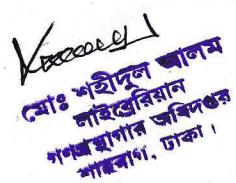 মোঃ শহীদুল আলম
লাইব্রেরিয়ান
গণগ্রন্থাগার অধিদপ্তর
শাহবাগ, ঢাকা।